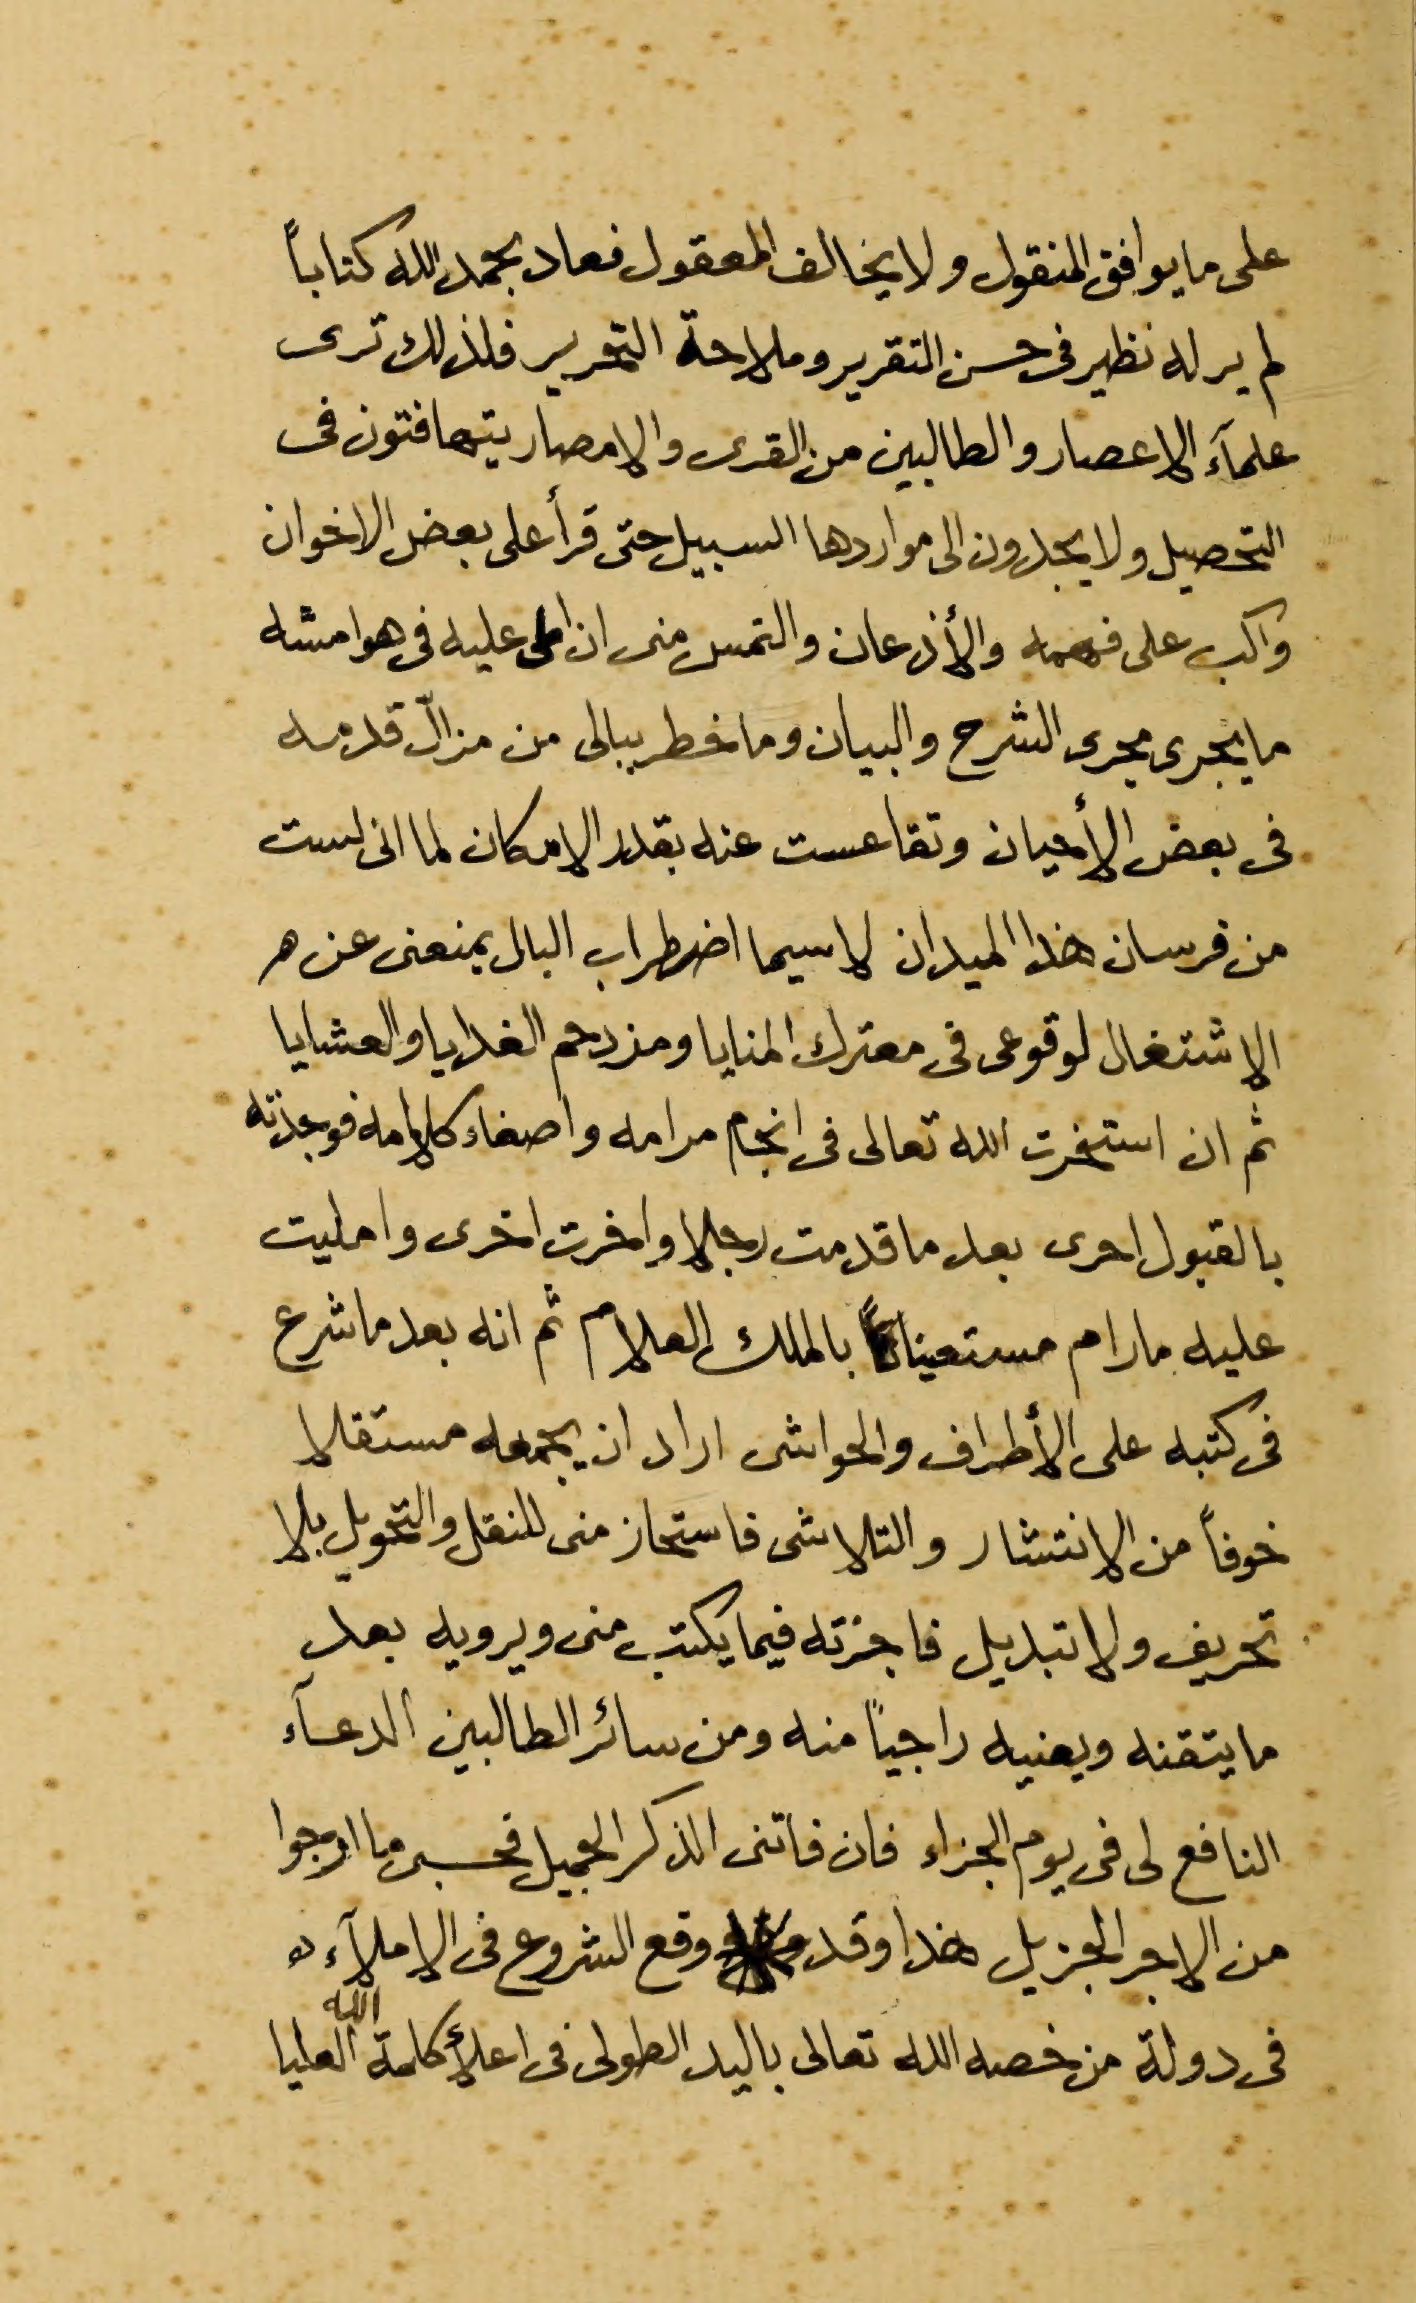 على ما يوافق المنقول ولا يخالف المعقول فعاد بحمد الله كتاباً
لم ير له نظير فى حسن التقرير وملاحة التحرير فلذلك ترى
علمآء الاعصار والطالبين من القرى والامصار يتهافتون فى
التحصيل ولا يجدون الى مواردها السبيل حتى قرأ على بعض الاخوان
واكب على فهمه والأذعان والتمس منى ان املى عليه فى هوامشه
ما يجرى مجرى الشرح والبيان وما خطر ببالى من مزالّ قدمه
فى بعض الأحيان وتقاعست عنه بقدر الامكان لما انى لست
من فرسان هذا الميدان لا سيما اضطراب البال يمنعنى عن
الاشتغال لوقوعى فى معترك المنايا ومزدحم الغدايا والعشايا
ثم ان استخرت الله تعالى فى انجام مرامه واصغاء كلامه فوجدته
بالقبول احرى بعد ما قدمت رجلا واخرت اخرى وامليت
عليه ما رام مستعيناً بالملك العلام ثم انه بعد ما شرع
فى كتبه على الأطراف والحواشى اراد ان يجمعه مستقلا
خوفاً من الانتشار والتلاشى فاستجاز منى للنقل والتحويل بلا
تحريف ولا تبديل فاجزته فيما يكتب منى ويرويه بعد
ما يتقنه ويعنيه راجياً منه ومن سائر الطالبين الدعآء
النافع لى فى يوم الجزاء فان فاتنى الذكر الجميل فحسبى ما ارجوا
من الاجر الجزيل هذا وقد وقع الشروع فى الاملآء
فى دولة من خصه الله تعالى باليد الطولى فى اعلأ كلمة الله العليا